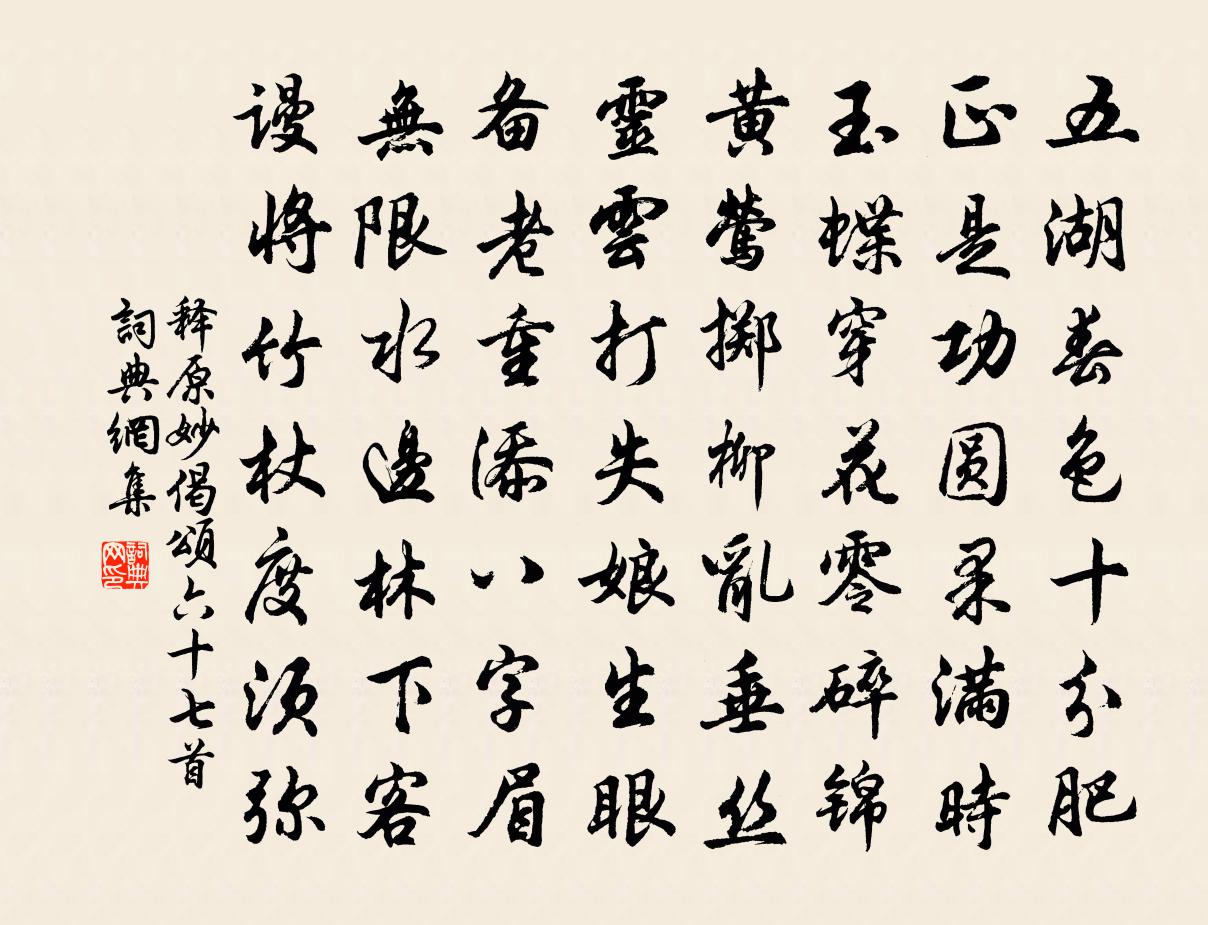 五湖春色十分肥
正是功圆果满時
玉蝶穿花零碎锦
黄莺掷柳亂垂丝
靈雲打失娘生眼
备老重添八字眉
無限水邊林下客
谩将竹杖度须弥
释原妙偈頌六十七首
詞典網集
詞典网印